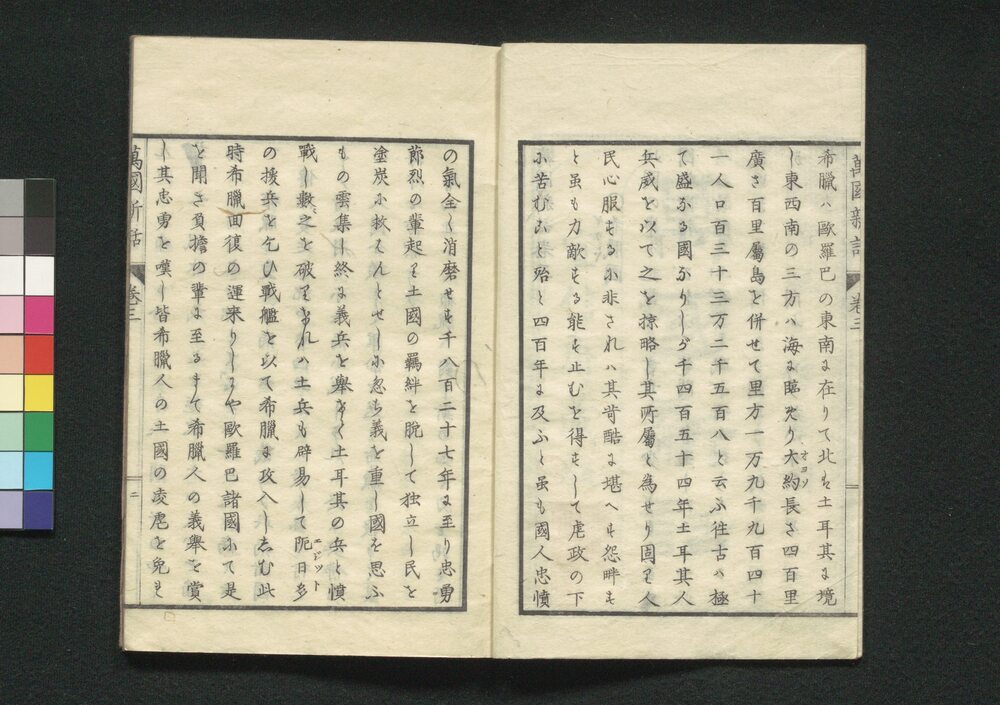 萬國新話 卷三
希臘ハ歐羅巴の東南に在りて北も土耳其に境
し東西南の三方ハ海に臨めり大約長さ四百里
オヨソ
廣さ百里屬島を併せて里方一万九千九百四十
一人口百三十三万二千五百八と云ふ往古ハ極
て盛なる國なりしが千四百五十四年土耳其人
兵威を以て之を掠略し其所屬と為せり固より人
民心服もるに非されハ其苛酷に堪へも怨畔も
と虽も力敵もる能も止むを得もして虐政の下
に苦むこと殆と四百年に及ふと虽も國人忠憤
の氣全く消磨せも千八百二十七年に至り忠勇
節烈の輩起り土國の羈絆を脱して独立し民を
塗炭に救はんとせしに忽ち義を重し國を思ふ
もの雲集し終に義兵を舉けて土耳其の兵と憤
戰し數之を破りけれハ土兵も辟易して阨日多
エジット
の援兵を乞ひ戰艦を以て希臘に攻入しむ此
時希臘回復の運来りしにや歐羅巴諸國にて是
を聞き負擔の輩に至るまて希臘人の義舉を賞
し其忠勇を嘆し皆希臘人の土國の凌虐を免も
萬國新話 卷三 二